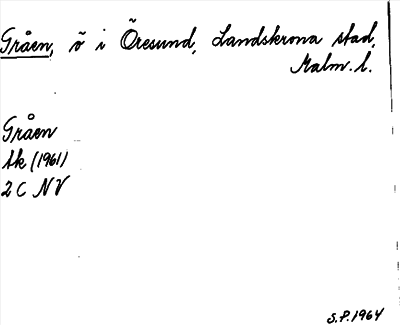 Gråen, ö i Öresund, Landskrona stad,
Malm. l.
Gråen
tk (1961)
2 C NV
S.P. 1964